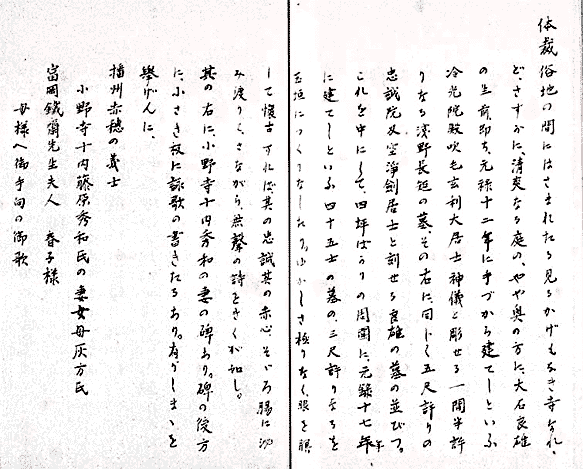 体裁俗地の間にはさまれたる見るかげもなき寺なれ、
ど、さすがに、清爽なる庭の、やや奥の方に、大石良雄
の生前、即ち、元禄十二年に手づから建てしといふ
冷光院殿吹毛玄利大居士神儀と彫せる一間半許
りなる浅野長矩の墓、その右に、同じく五尺許りの
忠誠院刄空浄剣居士と刻せる良雄の墓の並びつ。
これを中にして、四坪ばかりの周囲に、元録十七年、
に建てしといふ四十五士の墓の、三尺許りなるを
玉垣につくりなしたり、ゆかしさ極りなく、眼を瞑
して懐古すれば其の忠誠其の赤心、そゞろ腸に沁
み渡りて、さながら、無声の詩をきくが如し。
其の右に、小野寺十内秀和の妻の碑あり。碑の後方
に、小さき故に詠歌の書きたるあり。有がしまゝを
挙げんに、
播州赤穂の義士
小野寺十内藤原秀和氏の妻女母灰方氏
富岡鐵齋先生夫人 春子様
母様へ御手向の御歌